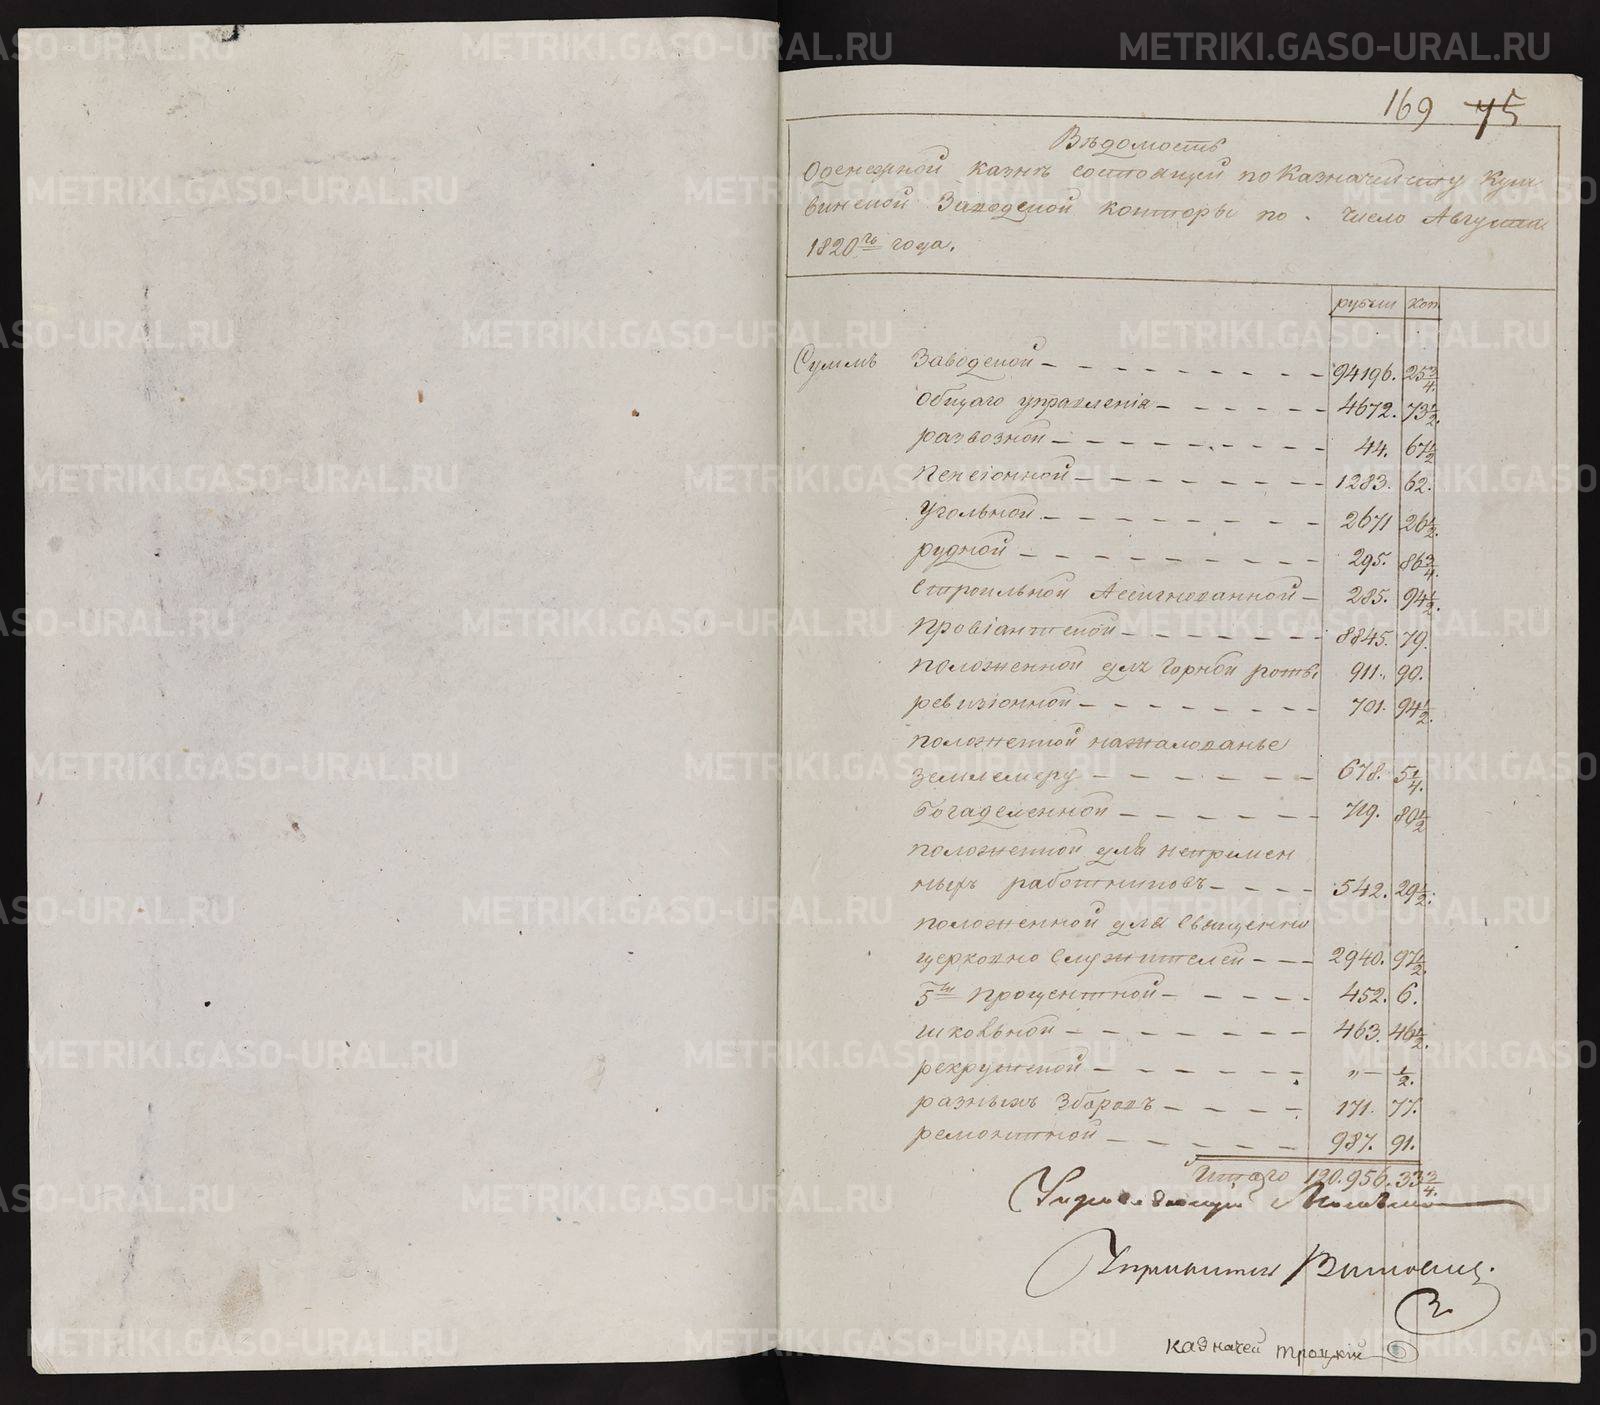 169 75
Вѣдомость
О денежной казнѣ состоящей по казначейству Куш
винской Заводской конторы по . число Августа
1820го года.
рубли коп
Суммъ Заводской 94196. 25 3/4.
Общаго управленія 4672. 73 1/2.
развозной 44. 67 1/2
Пенсіонной 1283. 62.
Угольной 2671 26 1/2.
рудной 295. 86 3/4.
Строильной Ассигнованной 285. 94 1/2.
Провіантской 8845. 79.
положенной для Горной роты 911. 90.
ревизіонной 701. 94 1/2.
положенной на жалованье
землемеру 678. 5 1/4.
богаделенной 719. 80 1/2
положенной для непремен
ныхъ работниковъ 542. 29 1/2.
положенной для Священно
церковно Служителей 2940. 97 1/2.
5ти процентной 452. 6.
школьной 463. 46 1/2.
рекрутской „ — 1/2.
разныхъ Зборовъ 171. 77.
ремонтной 987. 91.
Итого 120.956. 33 3/4.
Управляющий
Управитель
казначей троцкій
METRIKI.GASO-URAL.RU